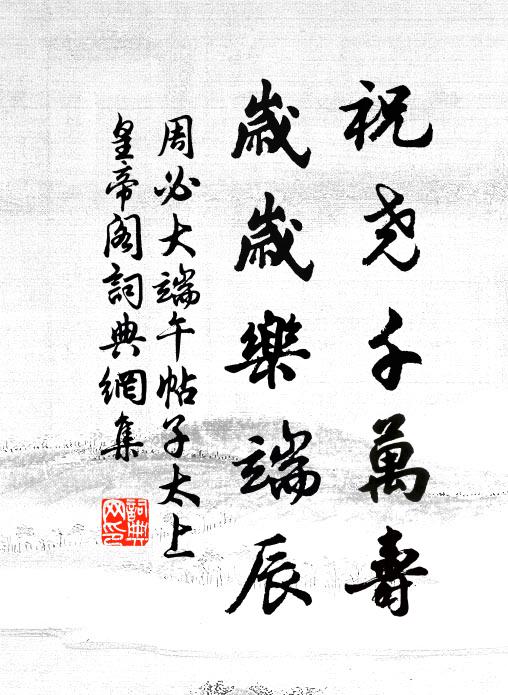 祝尧千萬壽
歲歲樂端辰
周必大端午帖子太上
皇帝阁詞典網集
詞典网印